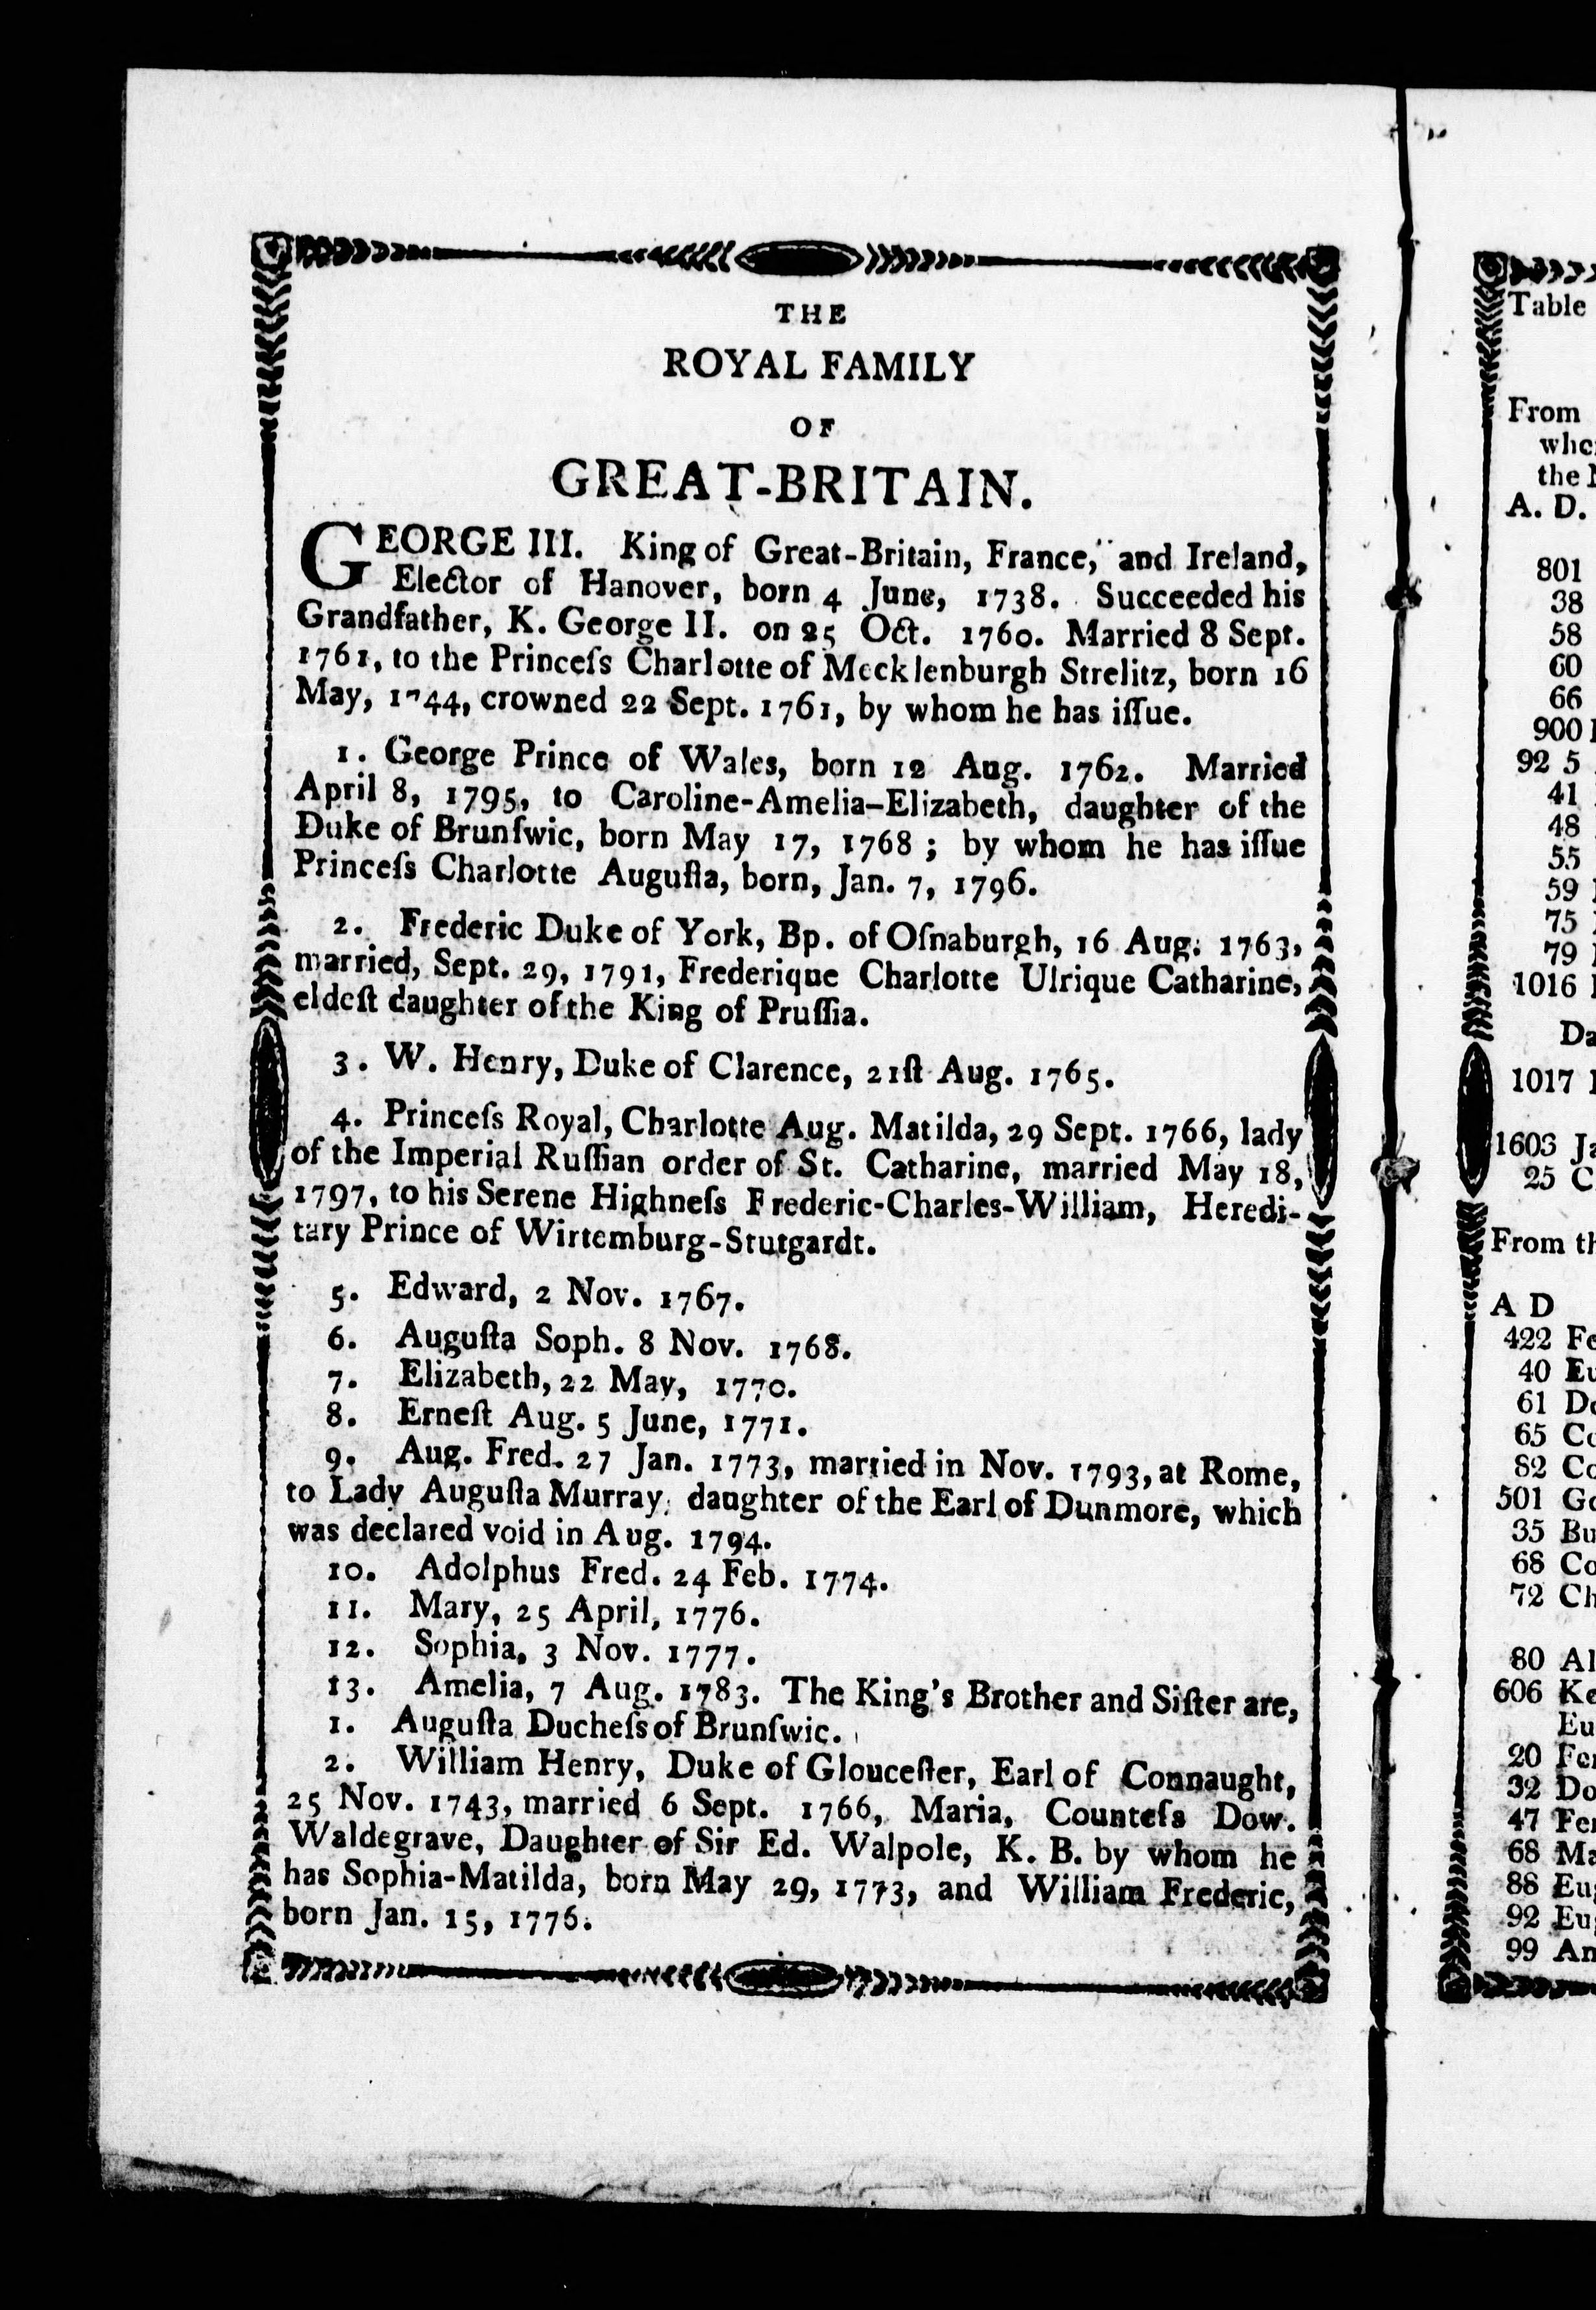 THE
ROYAL FAMILY
OF
GREAT-BRITAIN.
GEORGE III. King of Great-Britain, France, and Ireland,
Elector of Hanover, born 4 June, 1738. Succeeded his
Grandfather, K. George II. on 25 Oct. 1760. Married 8 Sept.
1761, to the Princeſs Charlotte of Mecklenburgh Strelitz, born 16
May, 1744, crowned 22 Sept. 1761, by whom he has iſſue.
1. George Prince of Wales, born 12 Aug. 1762. Married
April 8, 1795, to Caroline-Amelia-Elizabeth, daughter of the
Duke of Brunſwic, born May 17, 1768 ; by whom he has iſſue
Princeſs Charlotte Auguſta, born, Jan. 7, 1796.
2. Frederic Duke of York, Bp. of Oſnaburgh, 16 Aug. 1763,
married, Sept. 29, 1791, Frederique Charlotte Ulrique Catharine,
eldeſt daughter of the King of Pruſſia.
3. W. Henry, Duke of Clarence, 21ſt Aug. 1765.
4. Princeſs Royal, Charlotte Aug. Matilda, 29 Sept. 1766, lady
of the Imperial Ruſſian order of St. Catharine, married May 18,
1797, to his Serene Highneſs Frederic-Charles-William, Heredi-
tary Prince of Wirtemburg-Stutgardt.
5. Edward, 2 Nov. 1767.
6. Auguſta Soph. 8 Nov. 1768.
7. Elizabeth, 22 May, 1770.
8. Erneſt Aug. 5 June, 1771.
9. Aug. Fred. 27 Jan. 1773, married in Nov. 1793, at Rome,
to Lady Auguſta Murray, daughter of the Earl of Dunmore, which
was declared void in Aug. 1794.
10. Adolphus Fred. 24 Feb. 1774.
11. Mary, 25 April, 1776.
12. Sophia, 3 Nov. 1777.
13. Amelia, 7 Aug. 1783. The King's Brother and Siſter are,
1. Auguſta Ducheſs of Brunſwic.
2. William Henry, Duke of Glouceſter, Earl of Connaught,
25 Nov. 1743, married 6 Sept. 1766, Maria, Counteſs Dow.
Waldegrave, Daughter of Sir Ed. Walpole, K. B. by whom he
has Sophia-Matilda, born May 29, 1773, and William Frederic,
born Jan. 15, 1776.
Table
From
the
A. D.
801
38
58
60
66
900
92 5
41
48
55
59
75
79
1016
1017
1603
25
From
A D
422
40
61
65
82
501
35
68
72
80
606
20
32
47
68
88
92
99